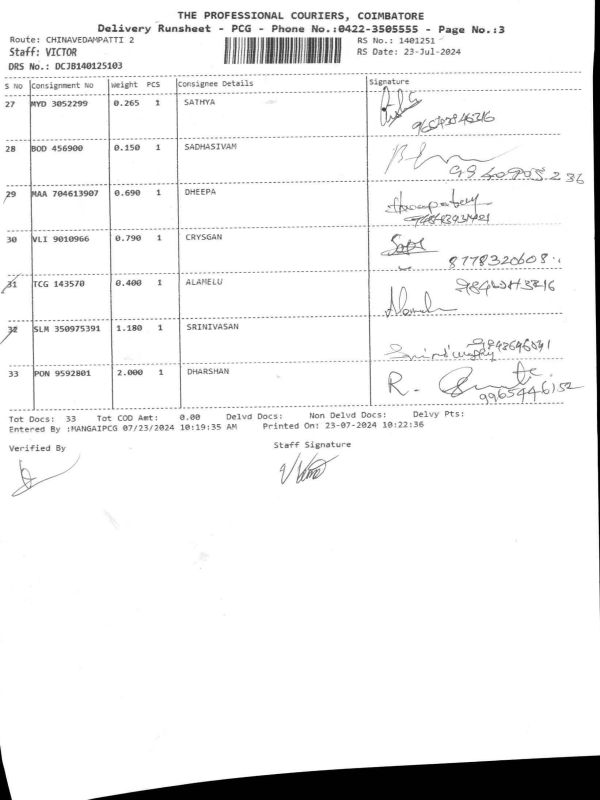 THE PROFESSIONAL COURIERS, COIMBATORE
Delivery Runsheet - PCG - Phone No.:0422-3505555 - Page No.:3
Route: CHINAVEDAMPATTI 2 RS No.: 1401251
Staff: VICTOR RS Date: 23-Jul-2024
DRS No.: DCJB140125103
S No Consignment No Weight PCS Consignee Details Signature
27 MYD 3052299 0.265 1 SATHYA
28 BOD 456900 0.150 1 SADHASIVAM
29 MAA 704613907 0.690 1 DHEEPA
30 VLI 9010966 0.790 1 CRYSGAN
8778320608
31 TCG 143570 0.400 1 ALAMELU
32 SLM 350975391 1.180 1 SRINIVASAN
33 PON 9592801 2.000 1 DHARSHAN
R.
9965446152
Tot Docs: 33 Tot COD Amt: 0.00 Delvd Docs: Non Delvd Docs: Delvy Pts:
Entered By :MANGAIPCG 07/23/2024 10:19:35 AM Printed On: 23-07-2024 10:22:36
Verified By Staff Signature